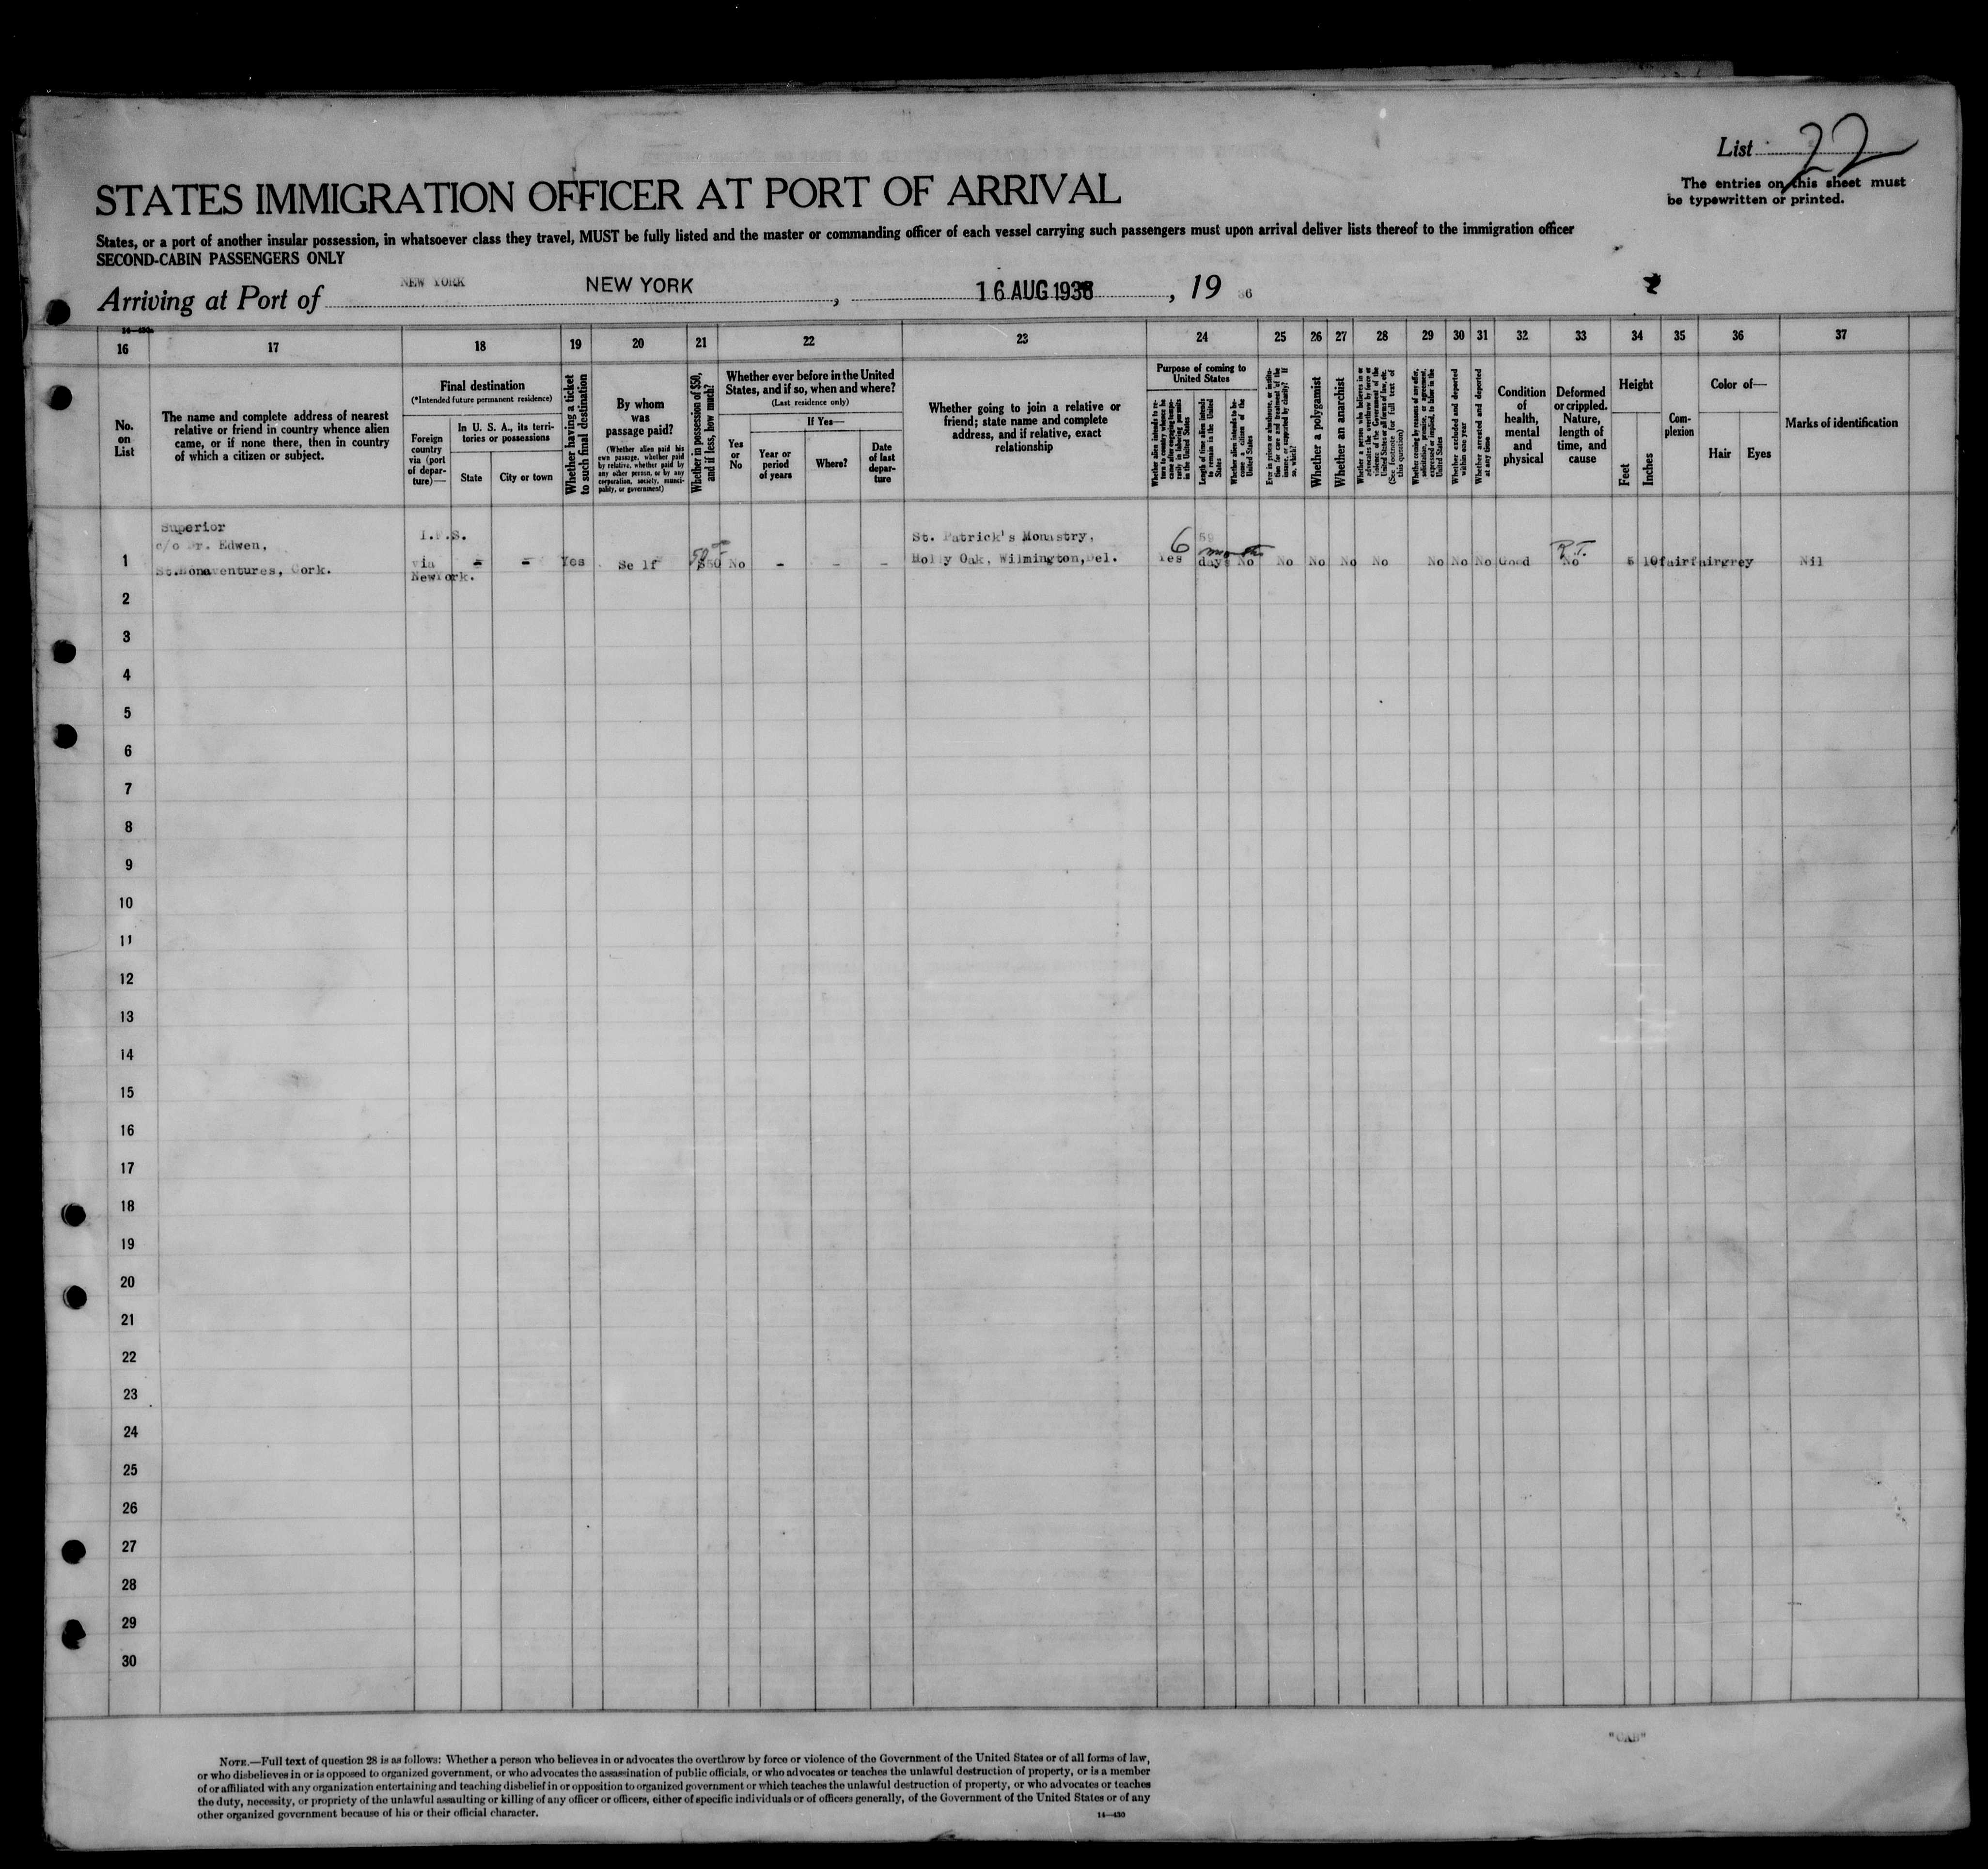 List 22
The entries on this sheet must
be typewritten or printed.
STATES IMMIGRATION OFFICER AT PORT OF ARRIVAL
States, or a port of another insular possession, in whatsoever class they travel, MUST be fully listed and the master or commanding officer of each vessel carrying such passengers must upon arrival deliver lists thereof to the immigration officer
SECOND-CABIN PASSENGERS ONLY
Arriving at Port of NEW YORK NEW YORK, 16 AUG 1936, 19 36
16 17 18 19 20 21 22 23 24 25 26 27 28 29 30 31 32 33 34 35 36 37
No.
on
List
The name and complete address of nearest
relative or friend in country whence alien
came, or if none there, then in country
of which a citizen or subject.
Final destination
(*Intended future permanent residence)
Foreign
country
via (port
of depar-
ture)—
In U. S. A., its terri-
tories or possessions
State
City or town
Whether having a ticket
to such final destination
By whom
was
passage paid?
(Whether alien paid his
own passage, whether paid
by relative, whether paid by
any other person, or by any
corporation, society, munici-
pality, or government)
Whether in possession of $50,
and if less, how much?
Whether ever before in the United
States, and if so, when and where?
(Last residence only)
Yes
or
No
If Yes—
Year or
period
of years
Where?
Date
of last
depar-
ture
Whether going to join a relative or
friend; state name and complete
address, and if relative, exact
relationship
Purpose of coming to
United States
Length of time alien intends
to remain in the United
States
Whether alien intends to be-
come a citizen of the
United States
Whether a polygamist
Whether an anarchist
Whether excluded and deported
within one year
Whether arrested and deported
at any time
Condition
of
health,
mental
and
physical
Deformed
or crippled.
Nature,
length of
time, and
cause
Height
Feet
Inches
Com-
plexion
Color of—
Hair
Eyes
Marks of identification
Superior
c/o Fr. Edwen,
St.Bonaventures, Cork.
I.F.S.
via
NewYork.
- -
Yes
Self
$50
No - - -
St. Patrick's Monastry,
Holly Oak, Wilmington, Del.
6 months
59
Yes days No
No No No No No No No Good
R.T.
No
5 10 fair fair grey
Nil
1
2
3
4
5
6
7
8
9
10
11
12
13
14
15
16
17
18
19
20
21
22
23
24
25
26
27
28
29
30
NOTE.—Full text of question 28 is as follows: Whether a person who believes in or advocates the overthrow by force or violence of the Government of the United States or of all forms of law,
or who disbelieves in or is opposed to organized government, or who advocates the assassination of public officials, or who advocates or teaches the unlawful destruction of property, or is a member
of or affiliated with any organization entertaining and teaching disbelief in or opposition to organized government or which teaches the unlawful destruction of property, or who advocates or teaches
the duty, necessity, or propriety of the unlawful assaulting or killing of any officer or officers, either of specific individuals or of officers generally, of the Government of the United States or of any
other organized government because of his or their official character.
14—430